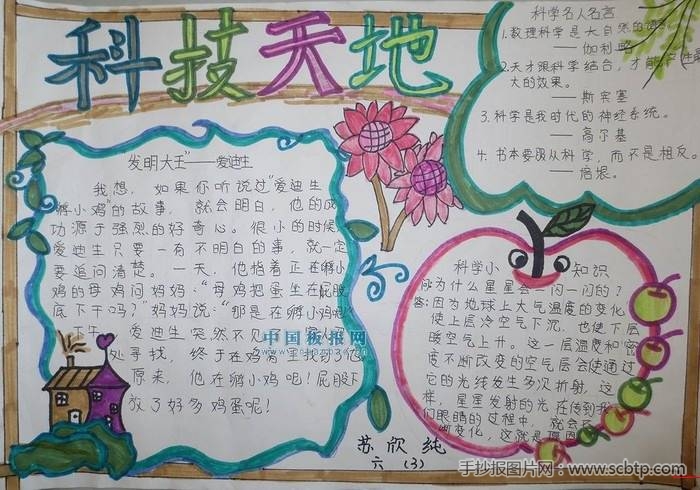 科技天地
发明大王"——爱迪生
我想，如果你听说过"爱迪生
孵小鸡"的故事，就会明白，他的成
功源于强烈的好奇心。很小的时候，
爱迪生只要一有不明白的事，就一定
要追问清楚。一天，他指着正在孵小
鸡的母鸡问妈妈："母鸡把蛋生在屁股
底下干吗？"妈妈说："那是在孵小鸡呢！
下午，爱迪生突然不见
处寻找，终于在鸡
原来，他在孵小鸡呢！屁股下
放了好多鸡蛋呢！
科学名人名言
1.数理科学是大自然的
——伽利略
2.天才跟科学结合，才能
大的效果。
——斯宾塞
3.科学是我时代的神经系统。
——高尔基
4.书本要服从科学，而不是相反。
——培根。
科学小知识
问为什么星星会一闪一闪的？
答：因为地球上大气温度的变化
使上层冷空气下沉，也使下层
暖空气上升。这一层温度和密
度不断改变的空气层会使通过
它的光线发生多次折射，这
样，星星发射的光在传到我
们眼睛的过程中，就会
断变化，这就是原因
苏欣纯
六（3）
中国板报网
手抄报图片网：www.scbtp.com